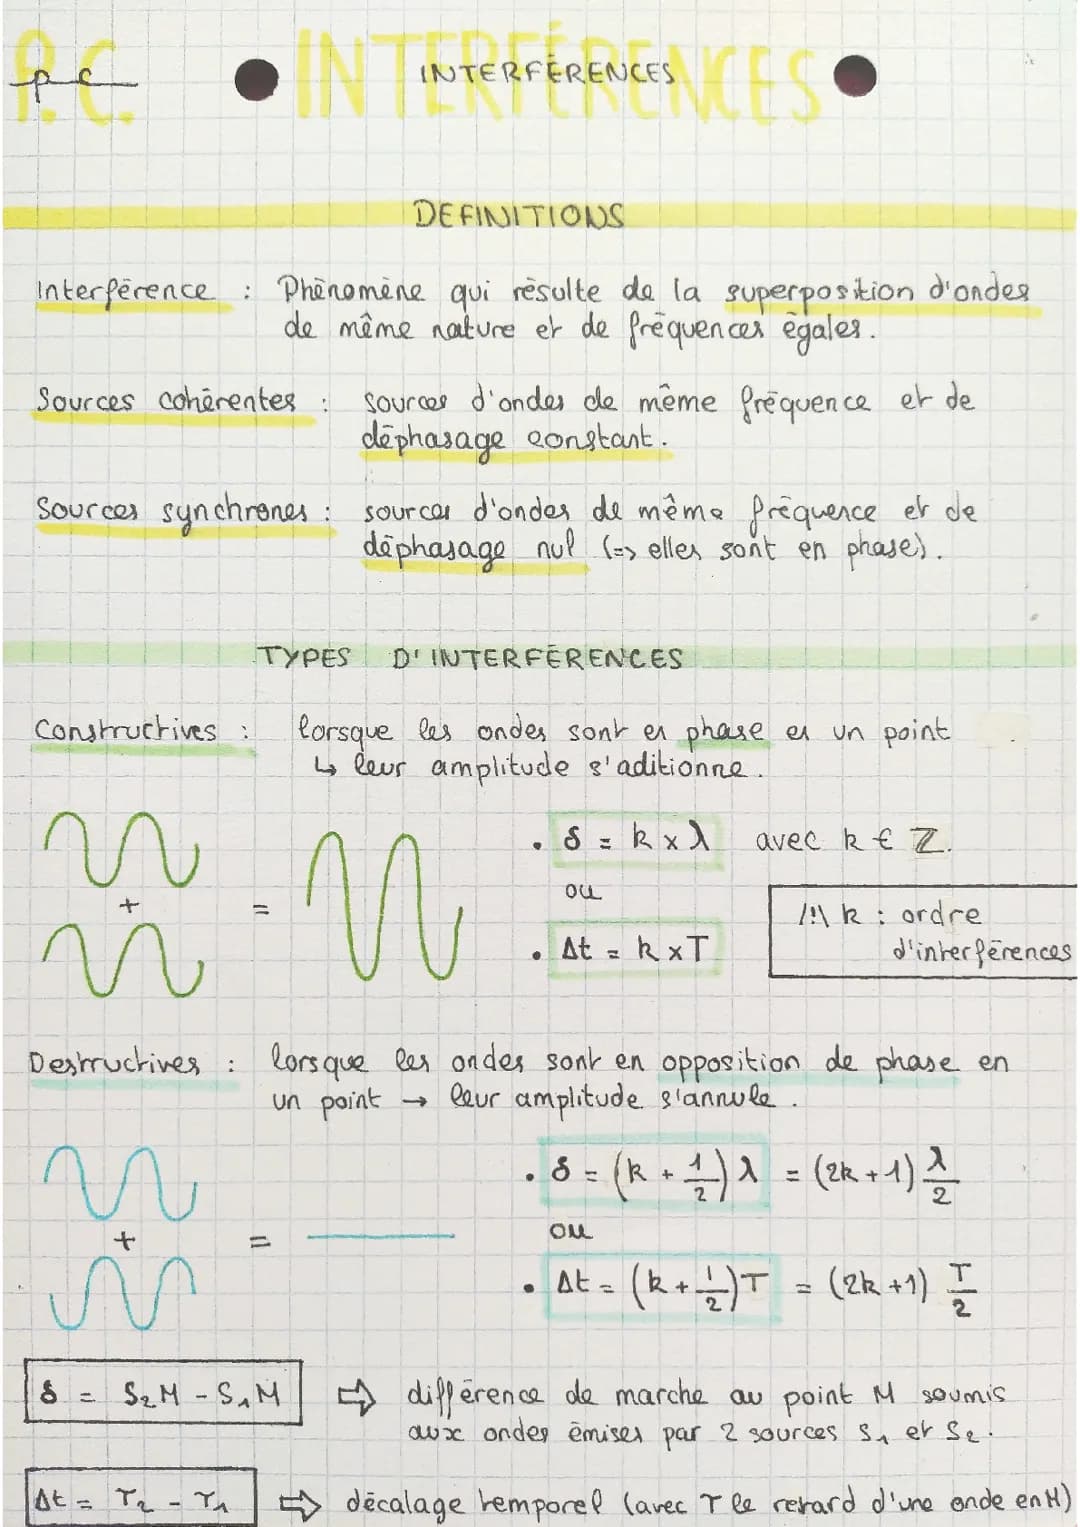 P.C. INTERFÉRENCES
PC INTERFÉRENCES
DEFINITIONS
Interférence : Phénomène qui résulte de la superposition d'ondes
de même nature et de fréquences égales.
Sources cohérentes : sources d'ondes de même fréquence et de
déphasage constant.
Sources synchrones : sources d'ondes de même fréquence et de
déphasage nul (=> elles sont en phase).
TYPES D'INTERFÉRENCES
Constructives : lorsque les ondes sont en phase en un point
↳ leur amplitude s'aditionne.
• δ = k x λ avec k € Z.
+ =
ou
/!\ k : ordre
d'interférences
• Δt = k x T
Destructives : lorsque les ondes sont en opposition de phase en
un point → leur amplitude s'annule.
• δ = (k + 1/2) λ = (2k + 1) λ/2
+ =
ou
• Δt = (k + 1/2) T = (2k + 1) T/2
δ = S₂M - S₁M ⇨ différence de marche au point M soumis
aux ondes émises par 2 sources S₁ et S₂.
Δt = τ₂ - τ₁ ⇨ décalage temporel (avec τ le retard d'une onde en M)